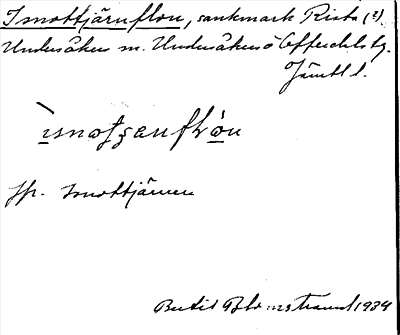 Ismottjärnflon, sankmark Rista (?)
Undersåker sn. Undersåkers o Offerdals tg.
Jämtl l.
ìsmotʒænflὼn
Jfr. Ismottjärnen
Bertil Blomstrand 1934